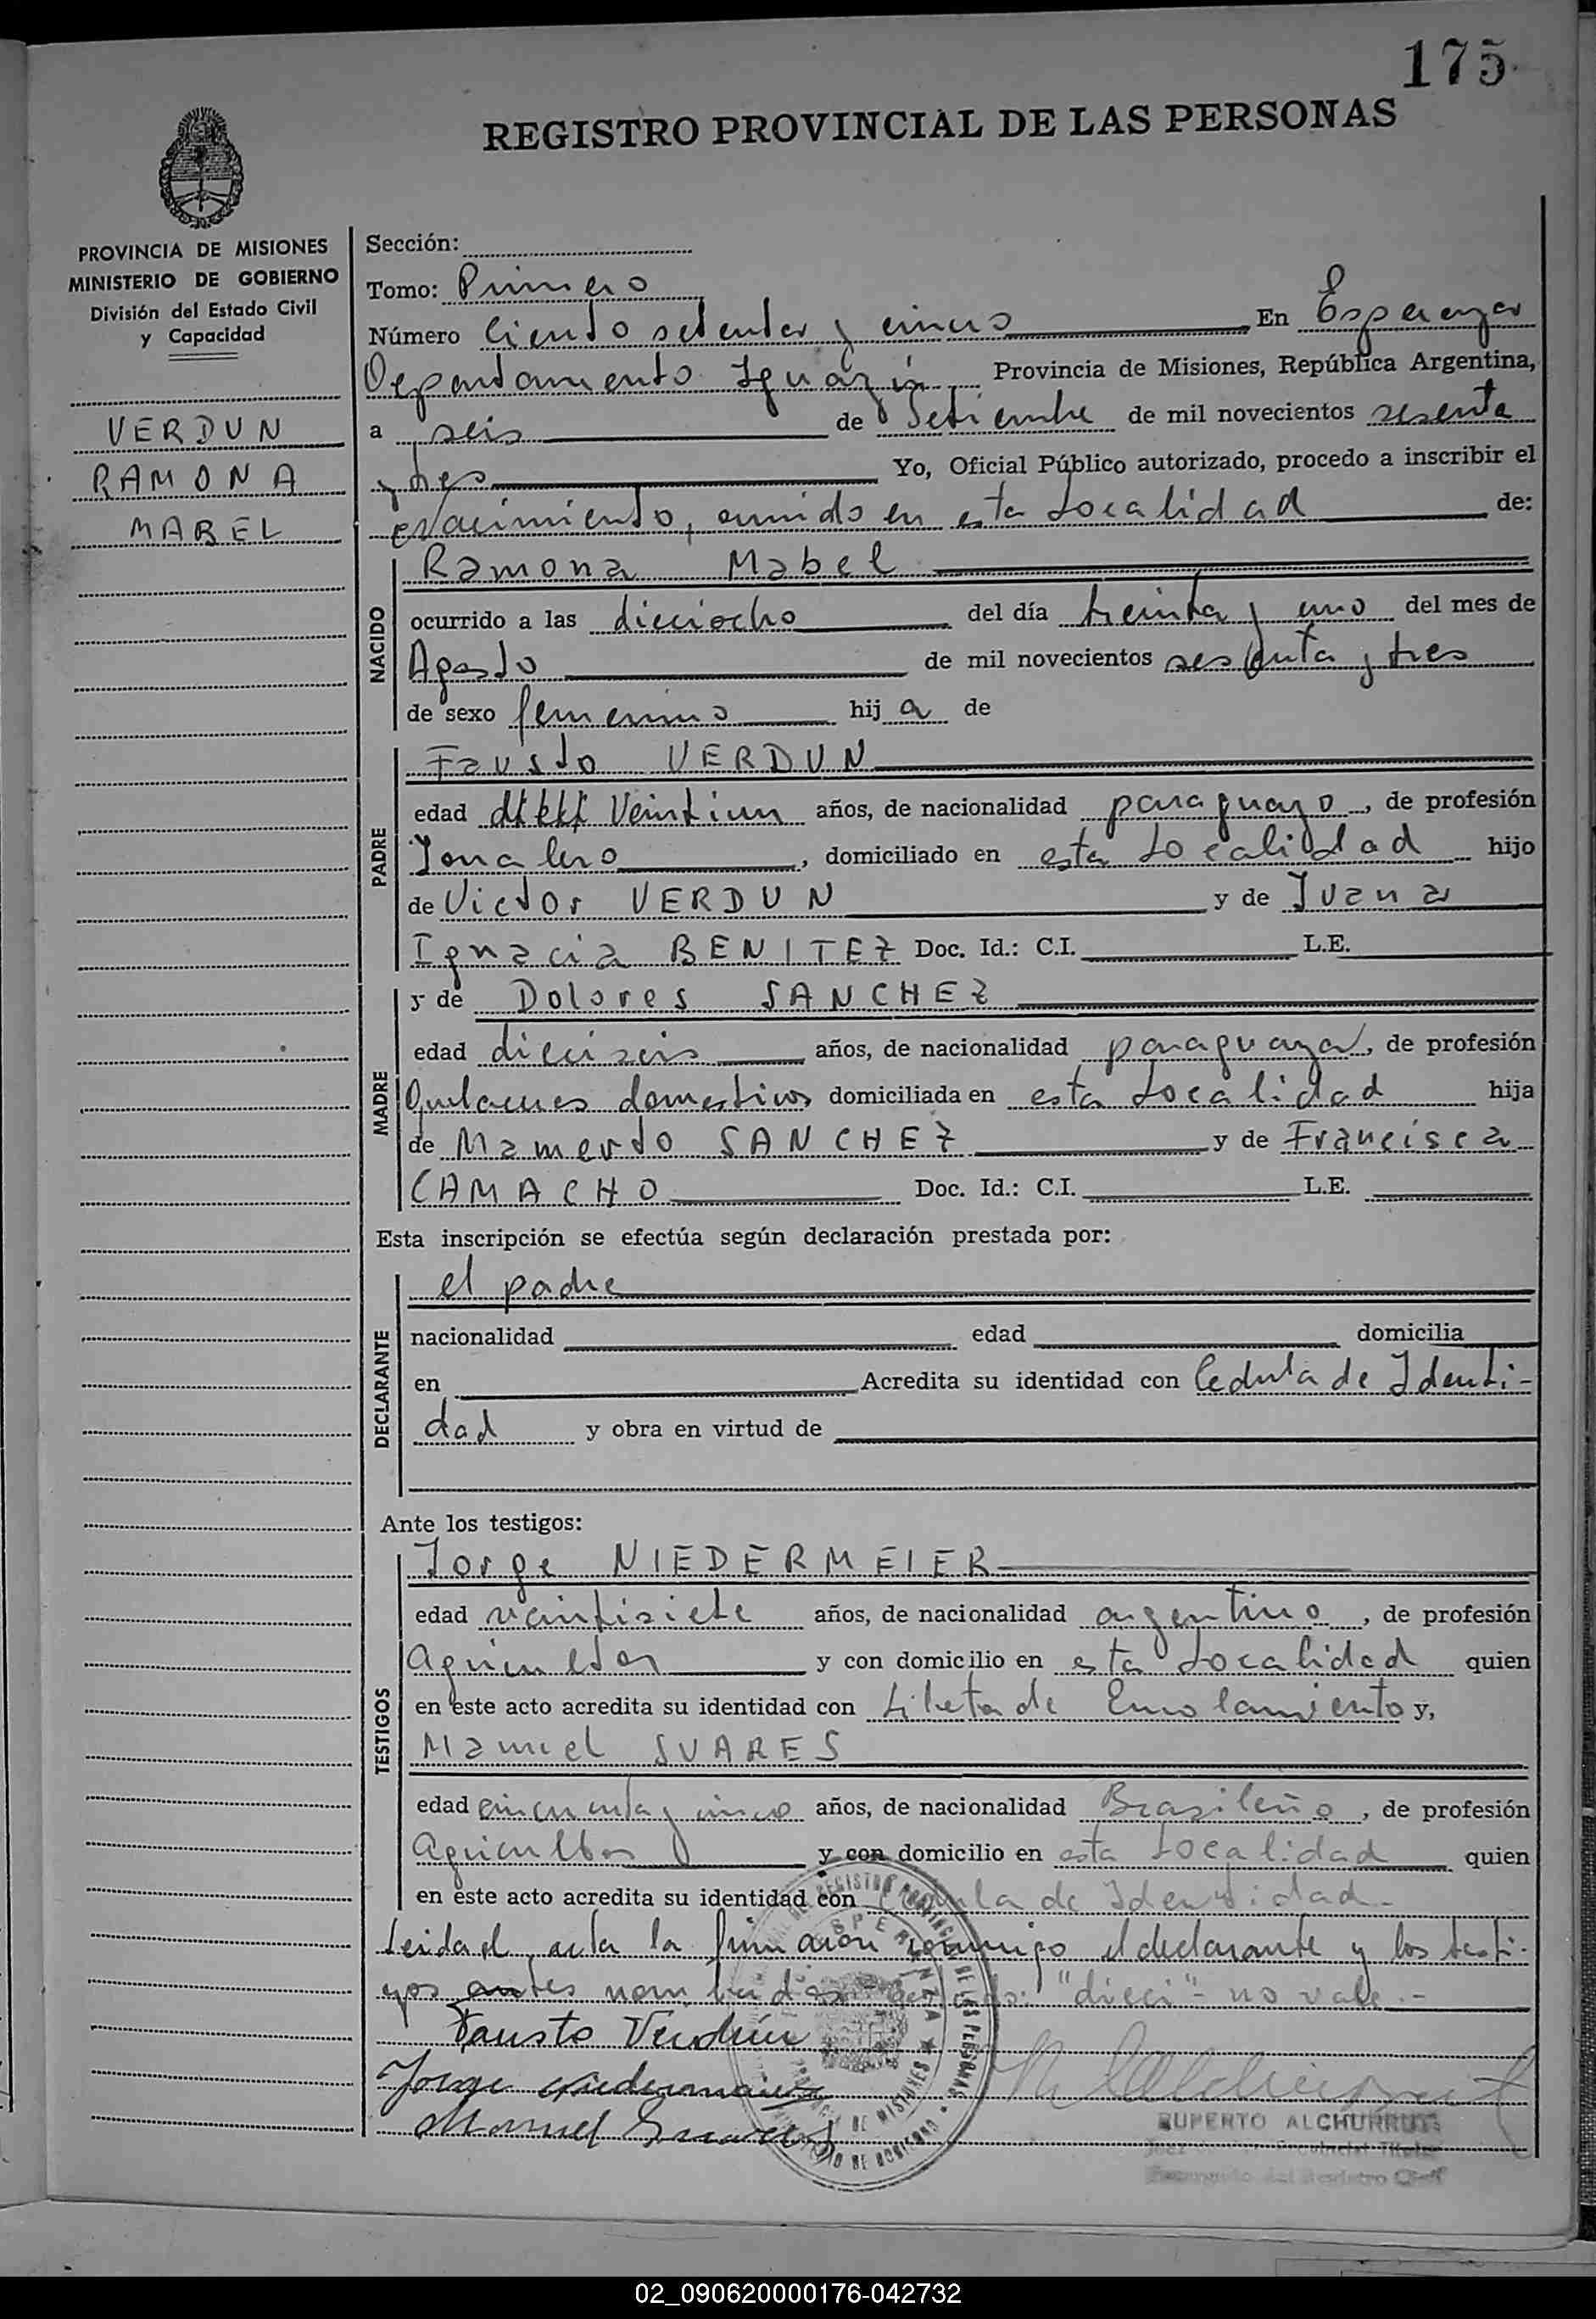 175
REGISTRO PROVINCIAL DE LAS PERSONAS
PROVINCIA DE MISIONES
MINISTERIO DE GOBIERNO
División del Estado Civil
y Capacidad
VERDUN
RAMONA
MABEL
Sección:
Tomo: Primero
Número Ciento setenta y cinco En Esperanza
Departamento Iguazú Provincia de Misiones, República Argentina,
a seis de Setiembre de mil novecientos sesenta
y tres Yo, Oficial Público autorizado, procedo a inscribir el
nacimiento, en esta Localidad de:
NACIDO
Ramona Mabel
ocurrido a las dieciocho del día treinta y uno del mes de
Agosto de mil novecientos sesenta y tres
de sexo femenino hij a de
PADRE
Fausto VERDUN
edad Veintiun años, de nacionalidad paraguayo, de profesión
Jornalero, domiciliado en esta Localidad hijo
de Victor VERDUN y de Juana
Ignacia BENITEZ Doc. Id.: C.I. L.E.
MADRE
y de Dolores SANCHEZ
edad dieciseis años, de nacionalidad paraguaya, de profesión
Quehaceres domesticos domiciliada en esta Localidad hija
de Mamerto SANCHEZ y de Francisca
CAMACHO Doc. Id.: C.I. L.E.
Esta inscripción se efectúa según declaración prestada por:
DECLARANTE
el padre
nacionalidad edad domicilia
en Acredita su identidad con Cedula de Identi-
dad y obra en virtud de
Ante los testigos:
TESTIGOS
Jorge NIEDERMEIER
edad veintisiete años, de nacionalidad argentino, de profesión
Agricultor y con domicilio en esta Localidad quien
en este acto acredita su identidad con Libreta de Enrolamiento y,
Manuel SUARES
edad cincuenta y cinco años, de nacionalidad Brasileño, de profesión
Agricultor y con domicilio en esta Localidad quien
en este acto acredita su identidad con Cedula de Identidad.-
Leida el acta la firmaron conmigo el declarante y los testi-
gos antes nombrados "dieci"- no vale.-
Fausto Verdún
Jorge Niedermaier
Manuel Suares
RUPERTO ALCHURRUT
02_090620000176-042732